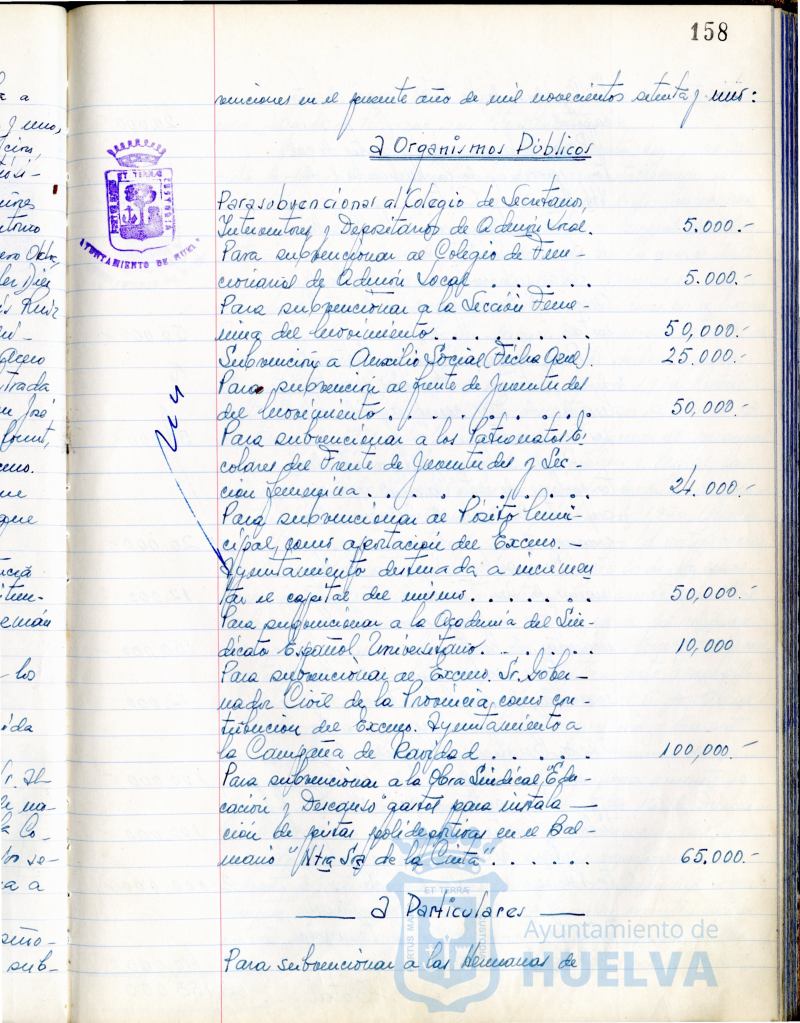 158
venciones en el presente año de mil novecientos setenta y uno:
a Organismos Públicos
Para subvencional al Colegio de Secretarios,
Interventores y Depositarios de Admón Local. 5.000.-
Para subvencionar al Colegio de Fun-
cionarios de Admón Local . . . . . 5.000.-
Para subvencionar a la Sección Feme-
nina del Movimiento. . . . . . . . . 50,000.-
Subvención a Auxilio Social (Ficha Azul). 25.000.-
Para subvención al frente de Juventudes
del Movimiento . . . . . . . . . . 50.000.-
Para subvencionar a los Patronatos Es
colares del Frente de Juventudes y Sec-
ción femenina. . . . . . . . . . . 24.000.-
Para subvencionar al Pósito Muni-
cipal, como aportación del Excmo. -
Ayuntamiento destinada a incremen
tar el capital del mismo. . . . . . 50,000.-
Para subvencionar a la Academia del Sin-
dicato Español Universitario. . . . . . 10,000
Para subvencionar al Excmo. Sr. Gober-
nador Civil de la Provincia, como con-
tribución del Excmo. Ayuntamiento a
la Campaña de Navidad . . . . . 100,000.-
Para subvencionar a la Obra Sindical "Edu-
cación y Descanso" gastos para instala —
ción de pistas polideportivas en el Bal-
neario "Ntra Sra de la Cinta". . . . . . 65.000.-
— a Particulares —
Para subvencionar a las Hermanas de
AYUNTAMIENTO DE HUEL
ET TERRÆ
Ayuntamiento de
HUELVA